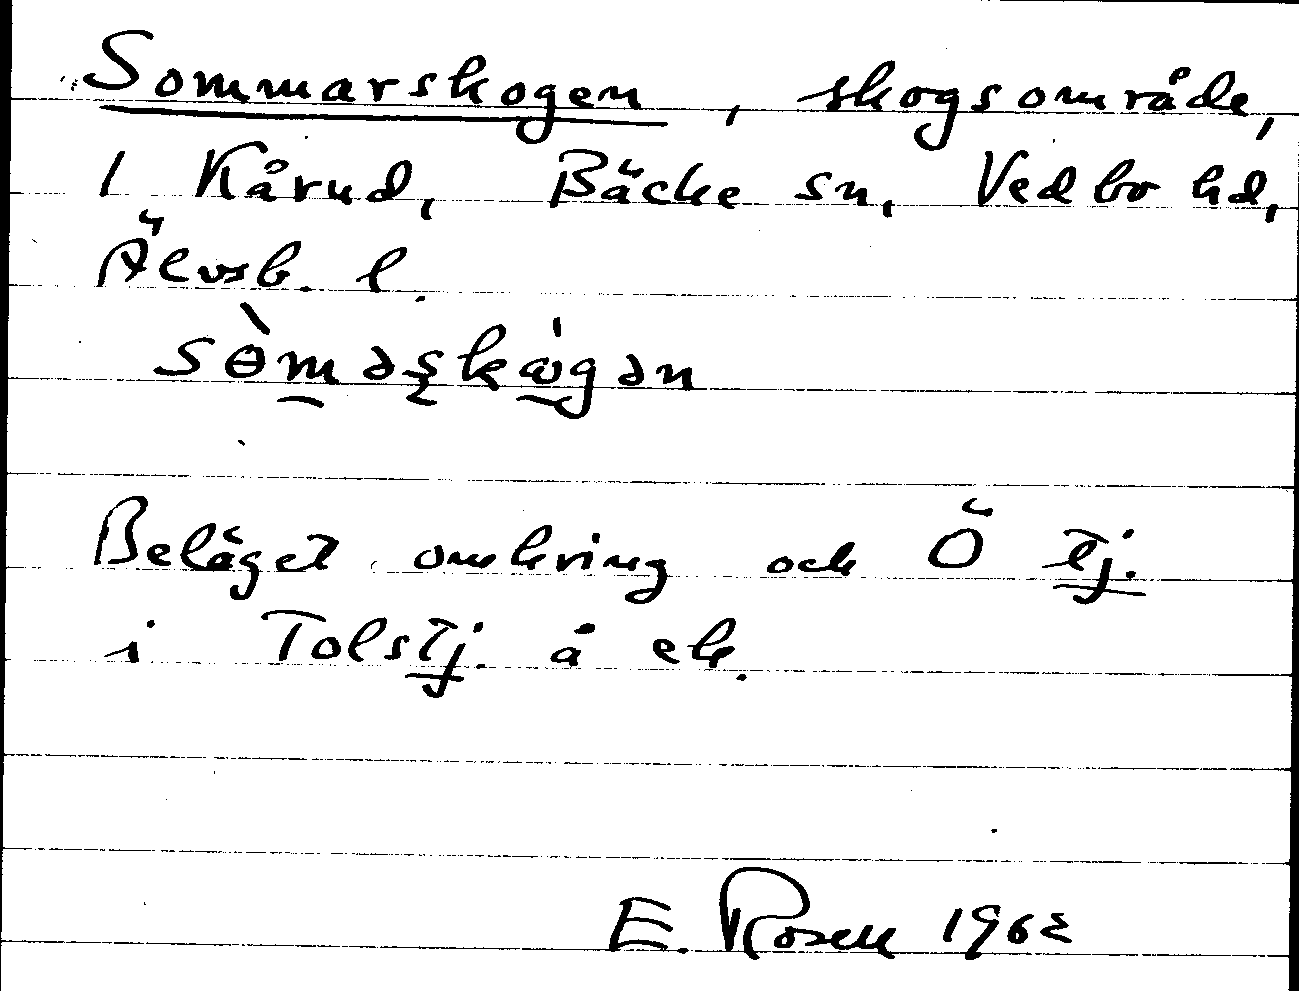 Sommarskogen, skogsområde,
1 Kårud, Bäcke sn, Vedbo hd,
Älvsb. l.
sɵ̀məskɷ́gən
Beläget omkring och Ö tj.
i Tolstj. å ek.
E. Rosell 1962